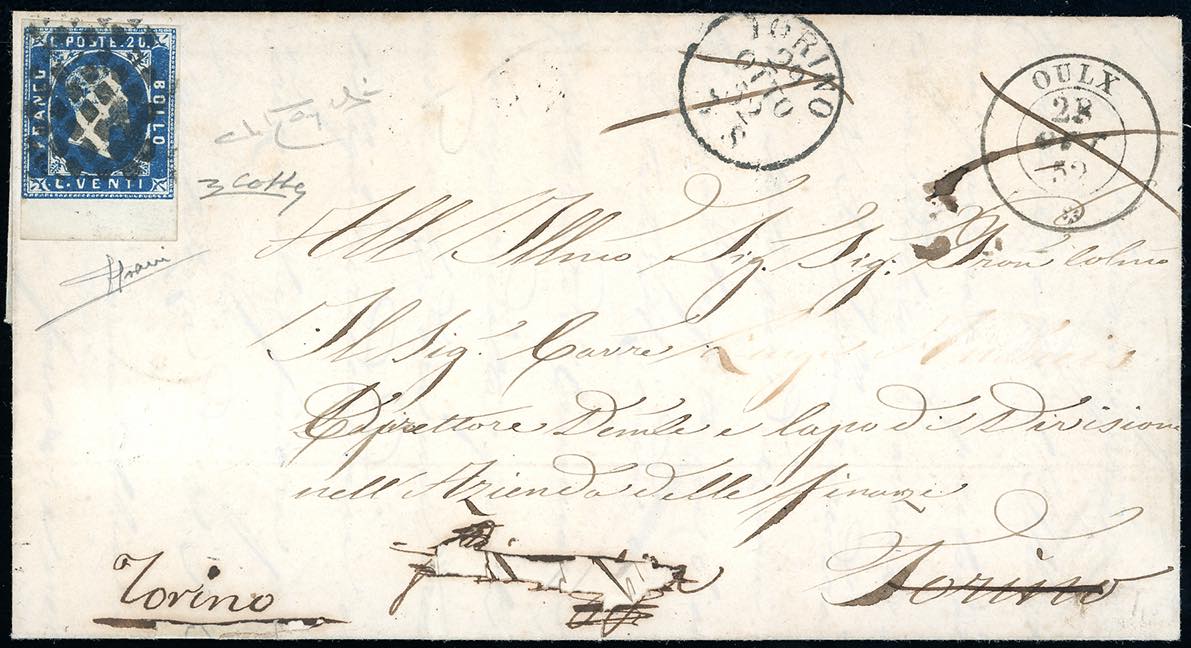 C. POSTE. 20.
FRANCO
BOLLO
C. VENTI
TORINO
29
OTTO
52
OULX
28
52
All' Illmo Sig. Sig. Pron Colmo
Il Sig. Cavre
Direttore Demle e Capo di Divisione
nell'Azienda delle finanze
Torino
Torino